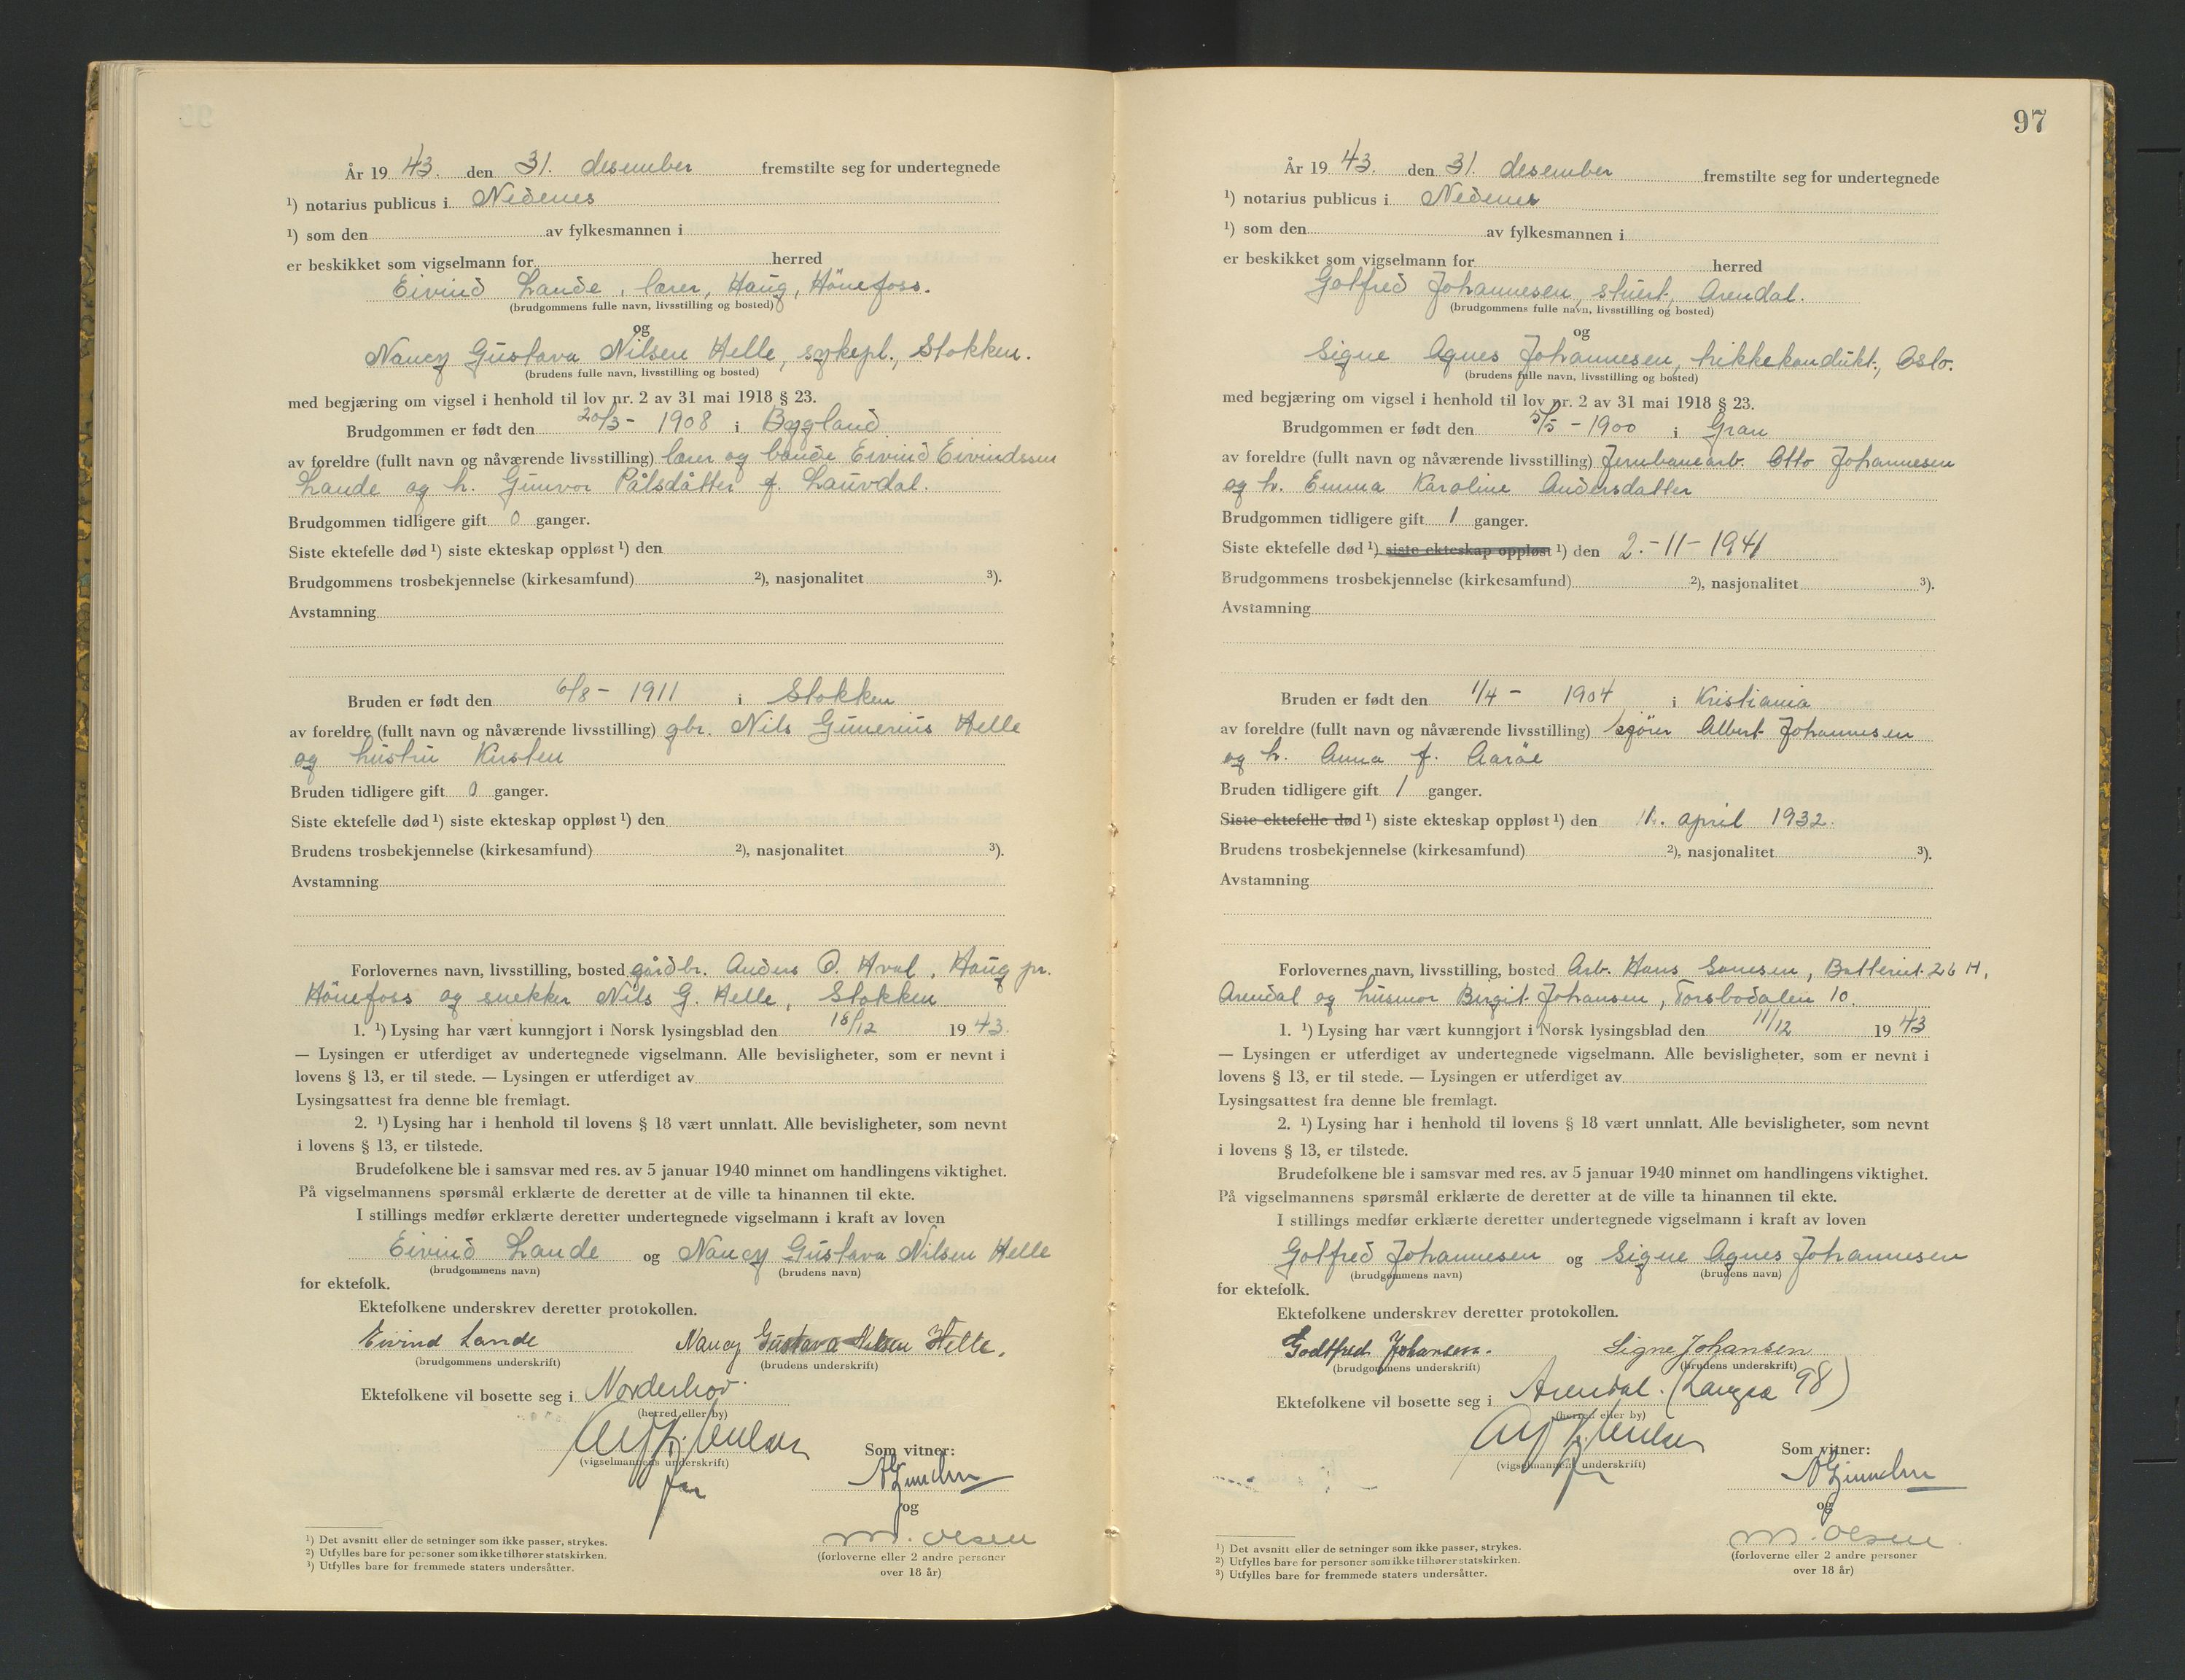 År 19 43. den 31. desember fremstilte seg for undertegnede
¹) notarius publicus i Nedenes
¹) som den av fylkesmannen i
er beskikket som vigselmann for herred
Eivind Lande, lærer, Haug, Hönefoss.
(brudgommens fulle navn, livsstilling og bosted)
og
Nancy Gustava Nilsen Helle, sykepl., Stokken.
(brudens fulle navn, livsstilling og bosted)
med begjæring om vigsel i henhold til lov nr. 2 av 31 mai 1918 § 23.
Brudgommen er født den 20/3 - 1908 i Bygland
av foreldre (fullt navn og nåværende livsstilling) lærer og bonde Eivind Eivindssen
Lande og h. Gunvor Pålsdåtter f. Lauvdal.
Brudgommen tidligere gift 0 ganger.
Siste ektefelle død ¹) siste ekteskap oppløst ¹) den
Brudgommens trosbekjennelse (kirkesamfund) ²), nasjonalitet ³).
Avstamning
Bruden er født den 6/8 - 1911 i Stokken
av foreldre (fullt navn og nåværende livsstilling) gbr. Nils Gunerius Helle
og hustru Kirsten
Bruden tidligere gift 0 ganger.
Siste ektefelle død ¹) siste ekteskap oppløst ¹) den
Brudens trosbekjennelse (kirkesamfund) ²), nasjonalitet ³).
Avstamning
Forlovernes navn, livsstilling, bosted gårdbr. Anders O. Hval, Haug pr.
Hönefoss og snekker Nils G. Helle, Stokken
1. ¹) Lysing har vært kunngjort i Norsk lysingsblad den 18/12 19 43.
— Lysingen er utferdiget av undertegnede vigselmann. Alle bevisligheter, som er nevnt i
lovens § 13, er til stede. — Lysingen er utferdiget av
Lysingsattest fra denne ble fremlagt.
2. ¹) Lysing har i henhold til lovens § 18 vært unnlatt. Alle bevisligheter, som nevnt
i lovens § 13, er tilstede.
Brudefolkene ble i samsvar med res. av 5 januar 1940 minnet om handlingens viktighet.
På vigselmannens spørsmål erklærte de deretter at de ville ta hinannen til ekte.
I stillings medfør erklærte deretter undertegnede vigselmann i kraft av loven
Eivind Lande og Nancy Gustava Nilsen Helle
(brudgommens navn) (brudens navn)
for ektefolk.
Ektefolkene underskrev deretter protokollen.
Eivind Lande Nancy Gustava Nilsen Helle.
(brudgommens underskrift) (brudens underskrift)
Ektefolkene vil bosette seg i Norderhov
(herred eller by)
Som vitner:
(vigselmannens underskrift)
og
M. Olsen
(forloverne eller 2 andre personer
over 18 år)
¹) Det avsnitt eller de setninger som ikke passer, strykes.
²) Utfylles bare for personer som ikke tilhører statskirken.
³) Utfylles bare for fremmede staters undersåtter.
97
År 19 43. den 31. desember fremstilte seg for undertegnede
¹) notarius publicus i Nedenes
¹) som den av fylkesmannen i
er beskikket som vigselmann for herred
Gotfred Johannesen, stuert, Arendal.
(brudgommens fulle navn, livsstilling og bosted)
og
Signe Agnes Johannesen, trikkekondukt., Oslo.
(brudens fulle navn, livsstilling og bosted)
med begjæring om vigsel i henhold til lov nr. 2 av 31 mai 1918 § 23.
Brudgommen er født den 5/5 - 1900 i Gran
av foreldre (fullt navn og nåværende livsstilling) Jernbanearb. Otto Johannesen
og h. Emma Karoline Andersdatter
Brudgommen tidligere gift 1 ganger.
Siste ektefelle død ¹) siste ekteskap oppløst ¹) den 2. - 11 - 1941
Brudgommens trosbekjennelse (kirkesamfund) ²), nasjonalitet ³).
Avstamning
Bruden er født den 1/4 - 1904 i Kristiania
av foreldre (fullt navn og nåværende livsstilling) kjörer Albert Johannesen
og h. Anna f. Aaröe
Bruden tidligere gift 1 ganger.
Siste ektefelle død ¹) siste ekteskap oppløst ¹) den 11. april 1932.
Brudens trosbekjennelse (kirkesamfund) ²), nasjonalitet ³).
Avstamning
Forlovernes navn, livsstilling, bosted Arb. Hans Gonesen, Batteriet 26 H,
Arendal og husmor Birgit Johansen, Torsbodalen 10.
1. ¹) Lysing har vært kunngjort i Norsk lysingsblad den 11/12 19 43
— Lysingen er utferdiget av undertegnede vigselmann. Alle bevisligheter, som er nevnt i
lovens § 13, er til stede. — Lysingen er utferdiget av
Lysingsattest fra denne ble fremlagt.
2. ¹) Lysing har i henhold til lovens § 18 vært unnlatt. Alle bevisligheter, som nevnt
i lovens § 13, er tilstede.
Brudefolkene ble i samsvar med res. av 5 januar 1940 minnet om handlingens viktighet.
På vigselmannens spørsmål erklærte de deretter at de ville ta hinannen til ekte.
I stillings medfør erklærte deretter undertegnede vigselmann i kraft av loven
Gotfred Johannesen og Signe Agnes Johannesen
(brudgommens navn) (brudens navn)
for ektefolk.
Ektefolkene underskrev deretter protokollen.
Godtfred Johansen. Signe Johansen
(brudgommens underskrift) (brudens underskrift)
Ektefolkene vil bosette seg i Arendal. (Langsæ 98)
(herred eller by)
Som vitner:
(vigselmannens underskrift)
og
M. Olsen
(forloverne eller 2 andre personer
over 18 år)
¹) Det avsnitt eller de setninger som ikke passer, strykes.
²) Utfylles bare for personer som ikke tilhører statskirken.
³) Utfylles bare for fremmede staters undersåtter.